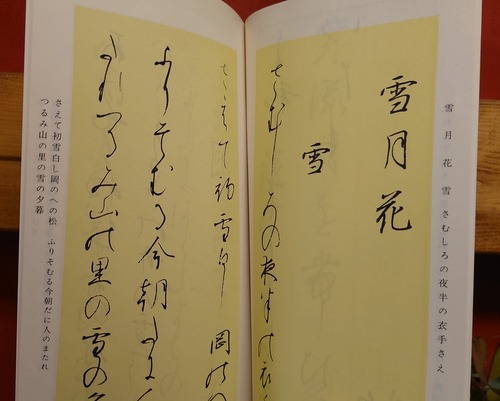 雪月花 雪 さむしろの夜半の衣手さえ
雪月花
雪
さむしろの夜半の衣
さえて初雪白し 岡の
ふりそむる今朝だに
たれつるみ山の里の雪の
さえて初雪白し岡のへの松 ふりそむる今朝だに人のまたれ
つるみ山の里の雪の夕暮